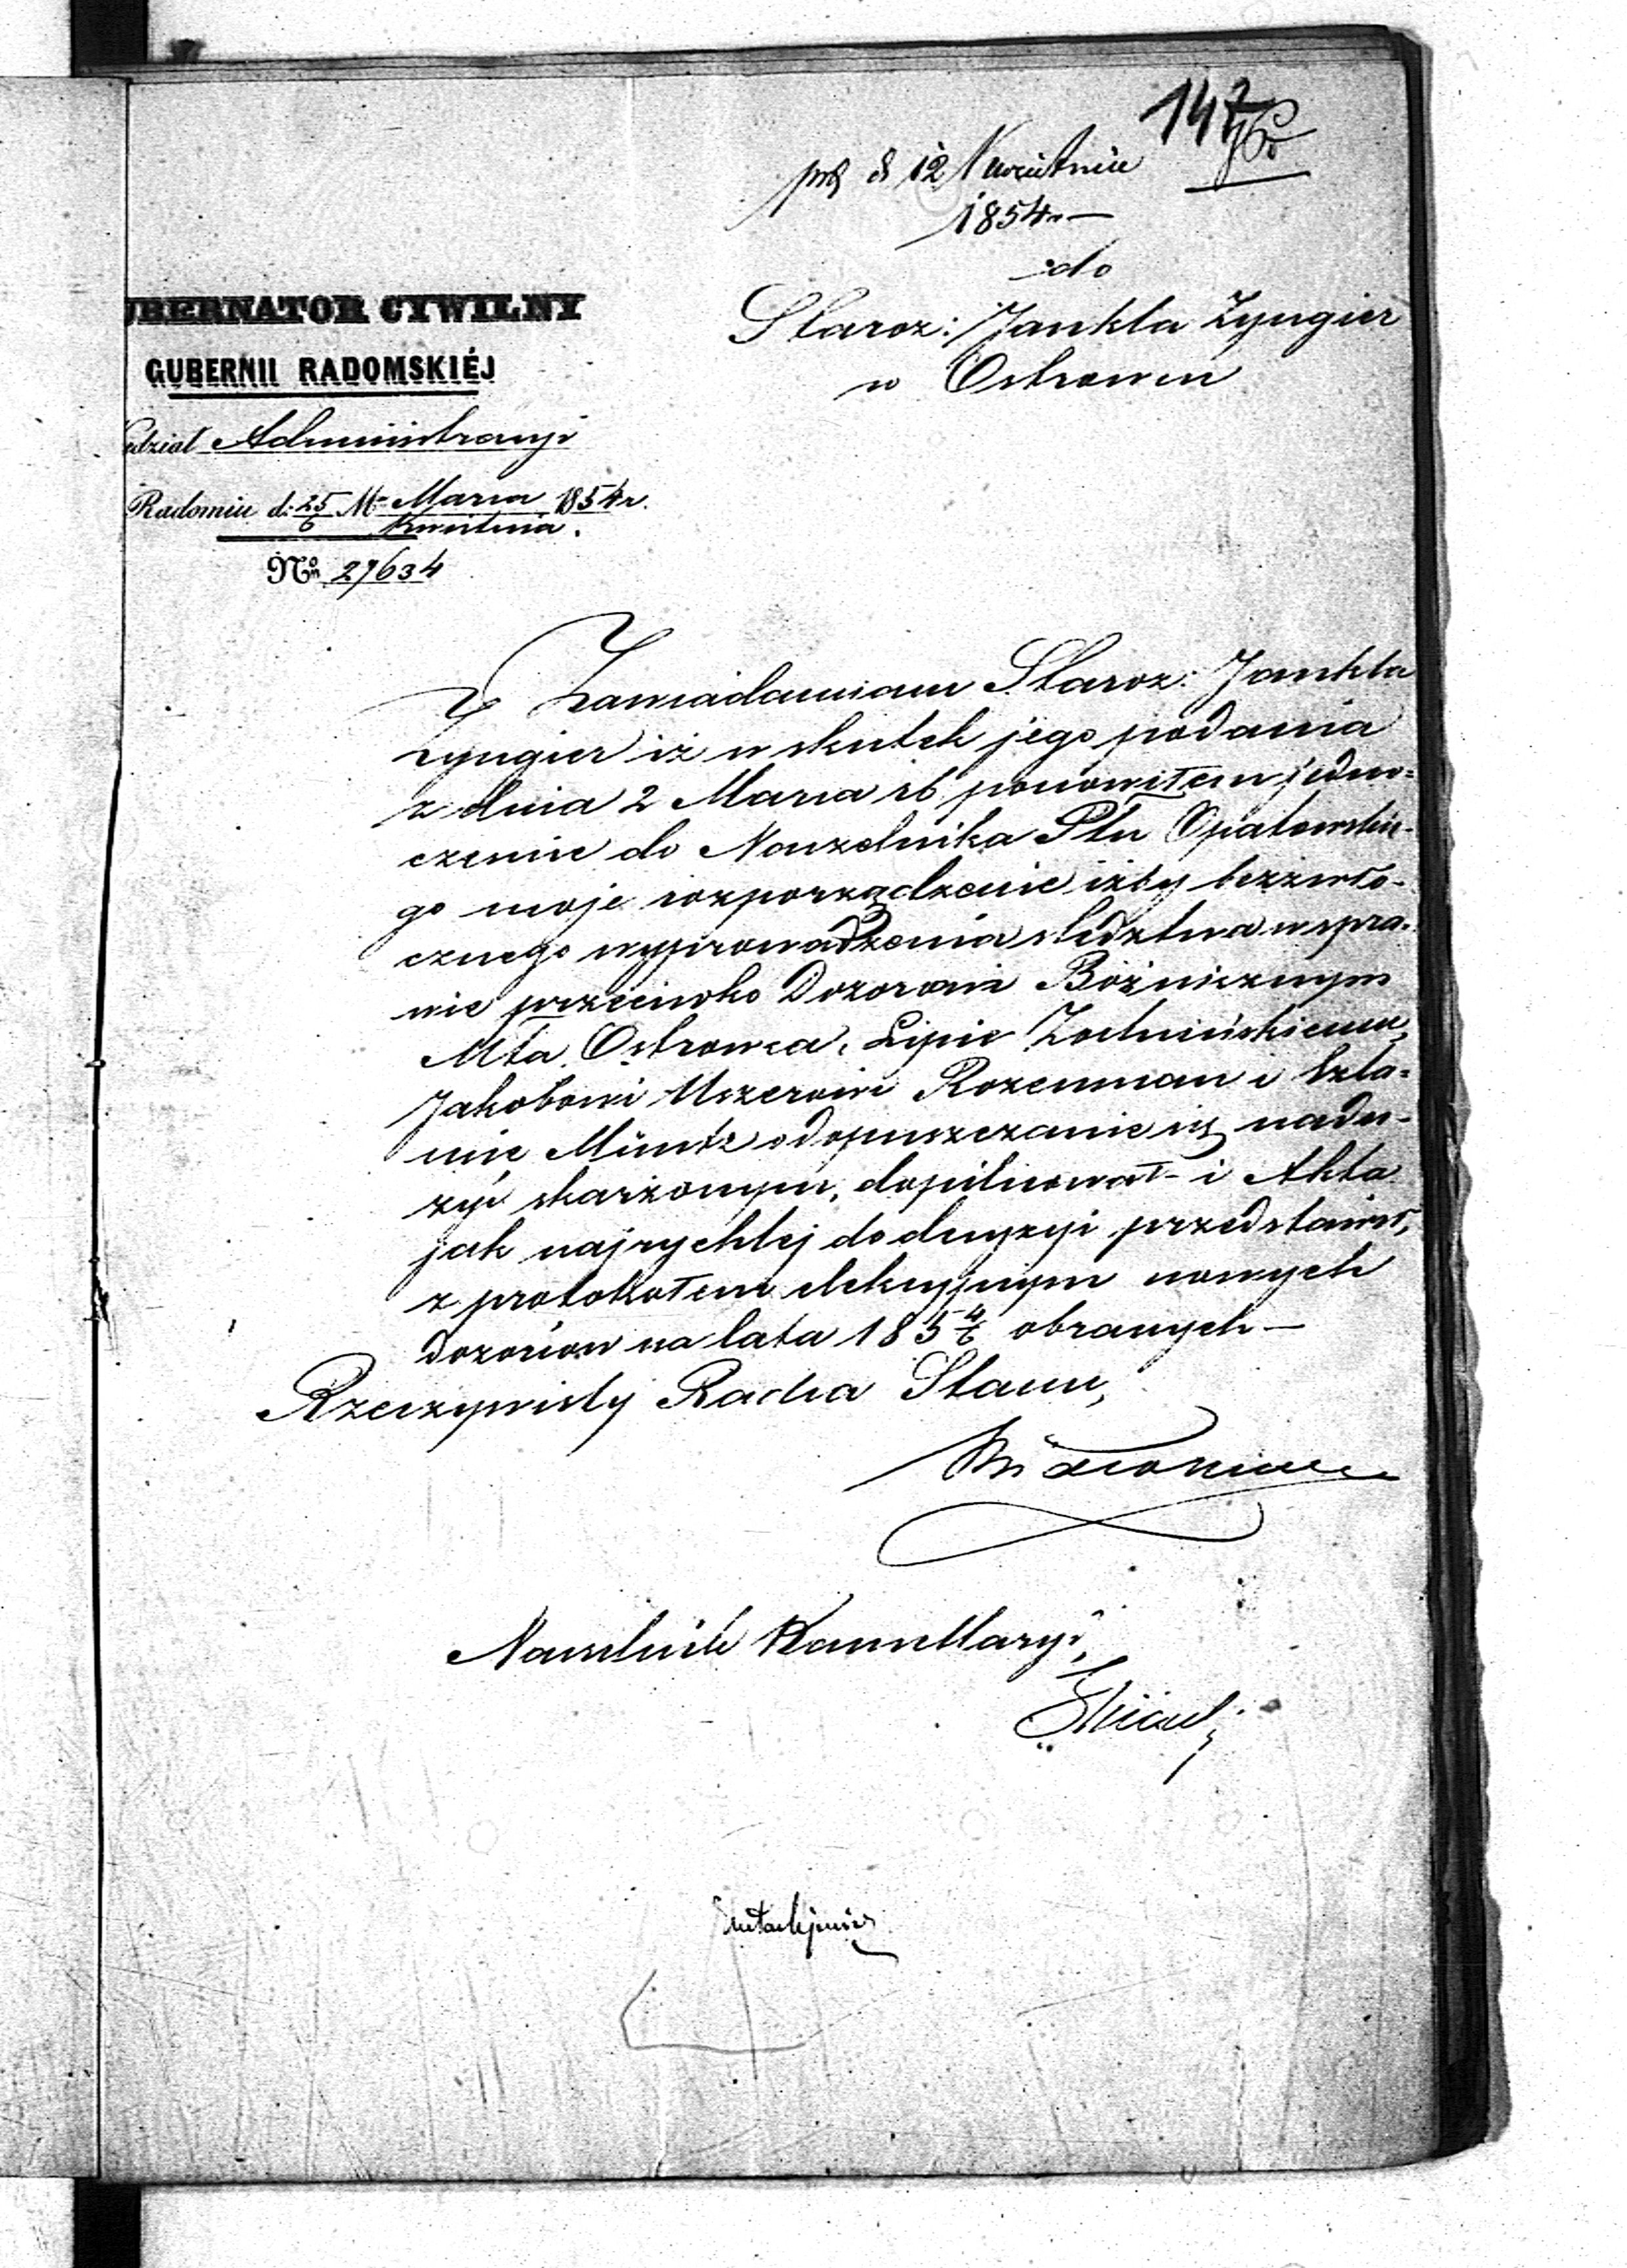 147
d 12 Kwietnia
1854 r.
do
Staroz: Jankla Zyngier
w Ostrowcu
UBERNATOR CYWILNY
GUBERNII RADOMSKIÉJ
ydział Administracyi
Radomiu d: 25/6 M-ca Marca/Kwietnia 1854 r.
No 27634
Zawiadamiam Staroz: Jankla
Zyngier iż w skutek jego podania
z dnia 2 Marca rb ponowiłem jedno=
czenie do Naczelnika Ptu Opatowskie-
go moje rozporządzenie iżby bezzwło-
cznego wyprowadzenia śledztwa w spra-
wie przeciwko Dozorcom Bóżnicznym
Mta Ostrowca, Lipie Zochcińskiemu,
Jakobowi Uszerowi Rozenman i Szla=
mie Müntz o dopuszczanie się nadu-
żyć skarżonym, dopilnował i Akta
jak najrychlej do decyzyi przedstawił,
z protokołem elekcyjnym nowych
dozorców na lata 185 4/6 obranych —
Rzeczywisty Radca Stanu,
Białoskur
Naczelnik Kancellaryi,